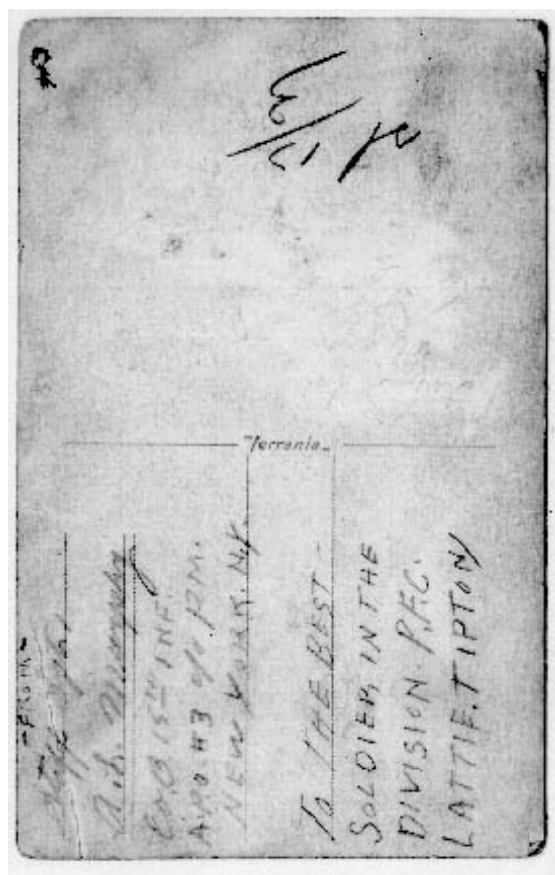 -FROM-
Staff Sgt.
A.L. Murphy
Co.B. 15TH INF.
A.P.O. #3 c/o P.M.
NEW YORK, N.Y.
To THE BEST -
SOLDIER IN THE
DIVISION. P.F.C.
LATTIE. TIPTON
"Ferrania"